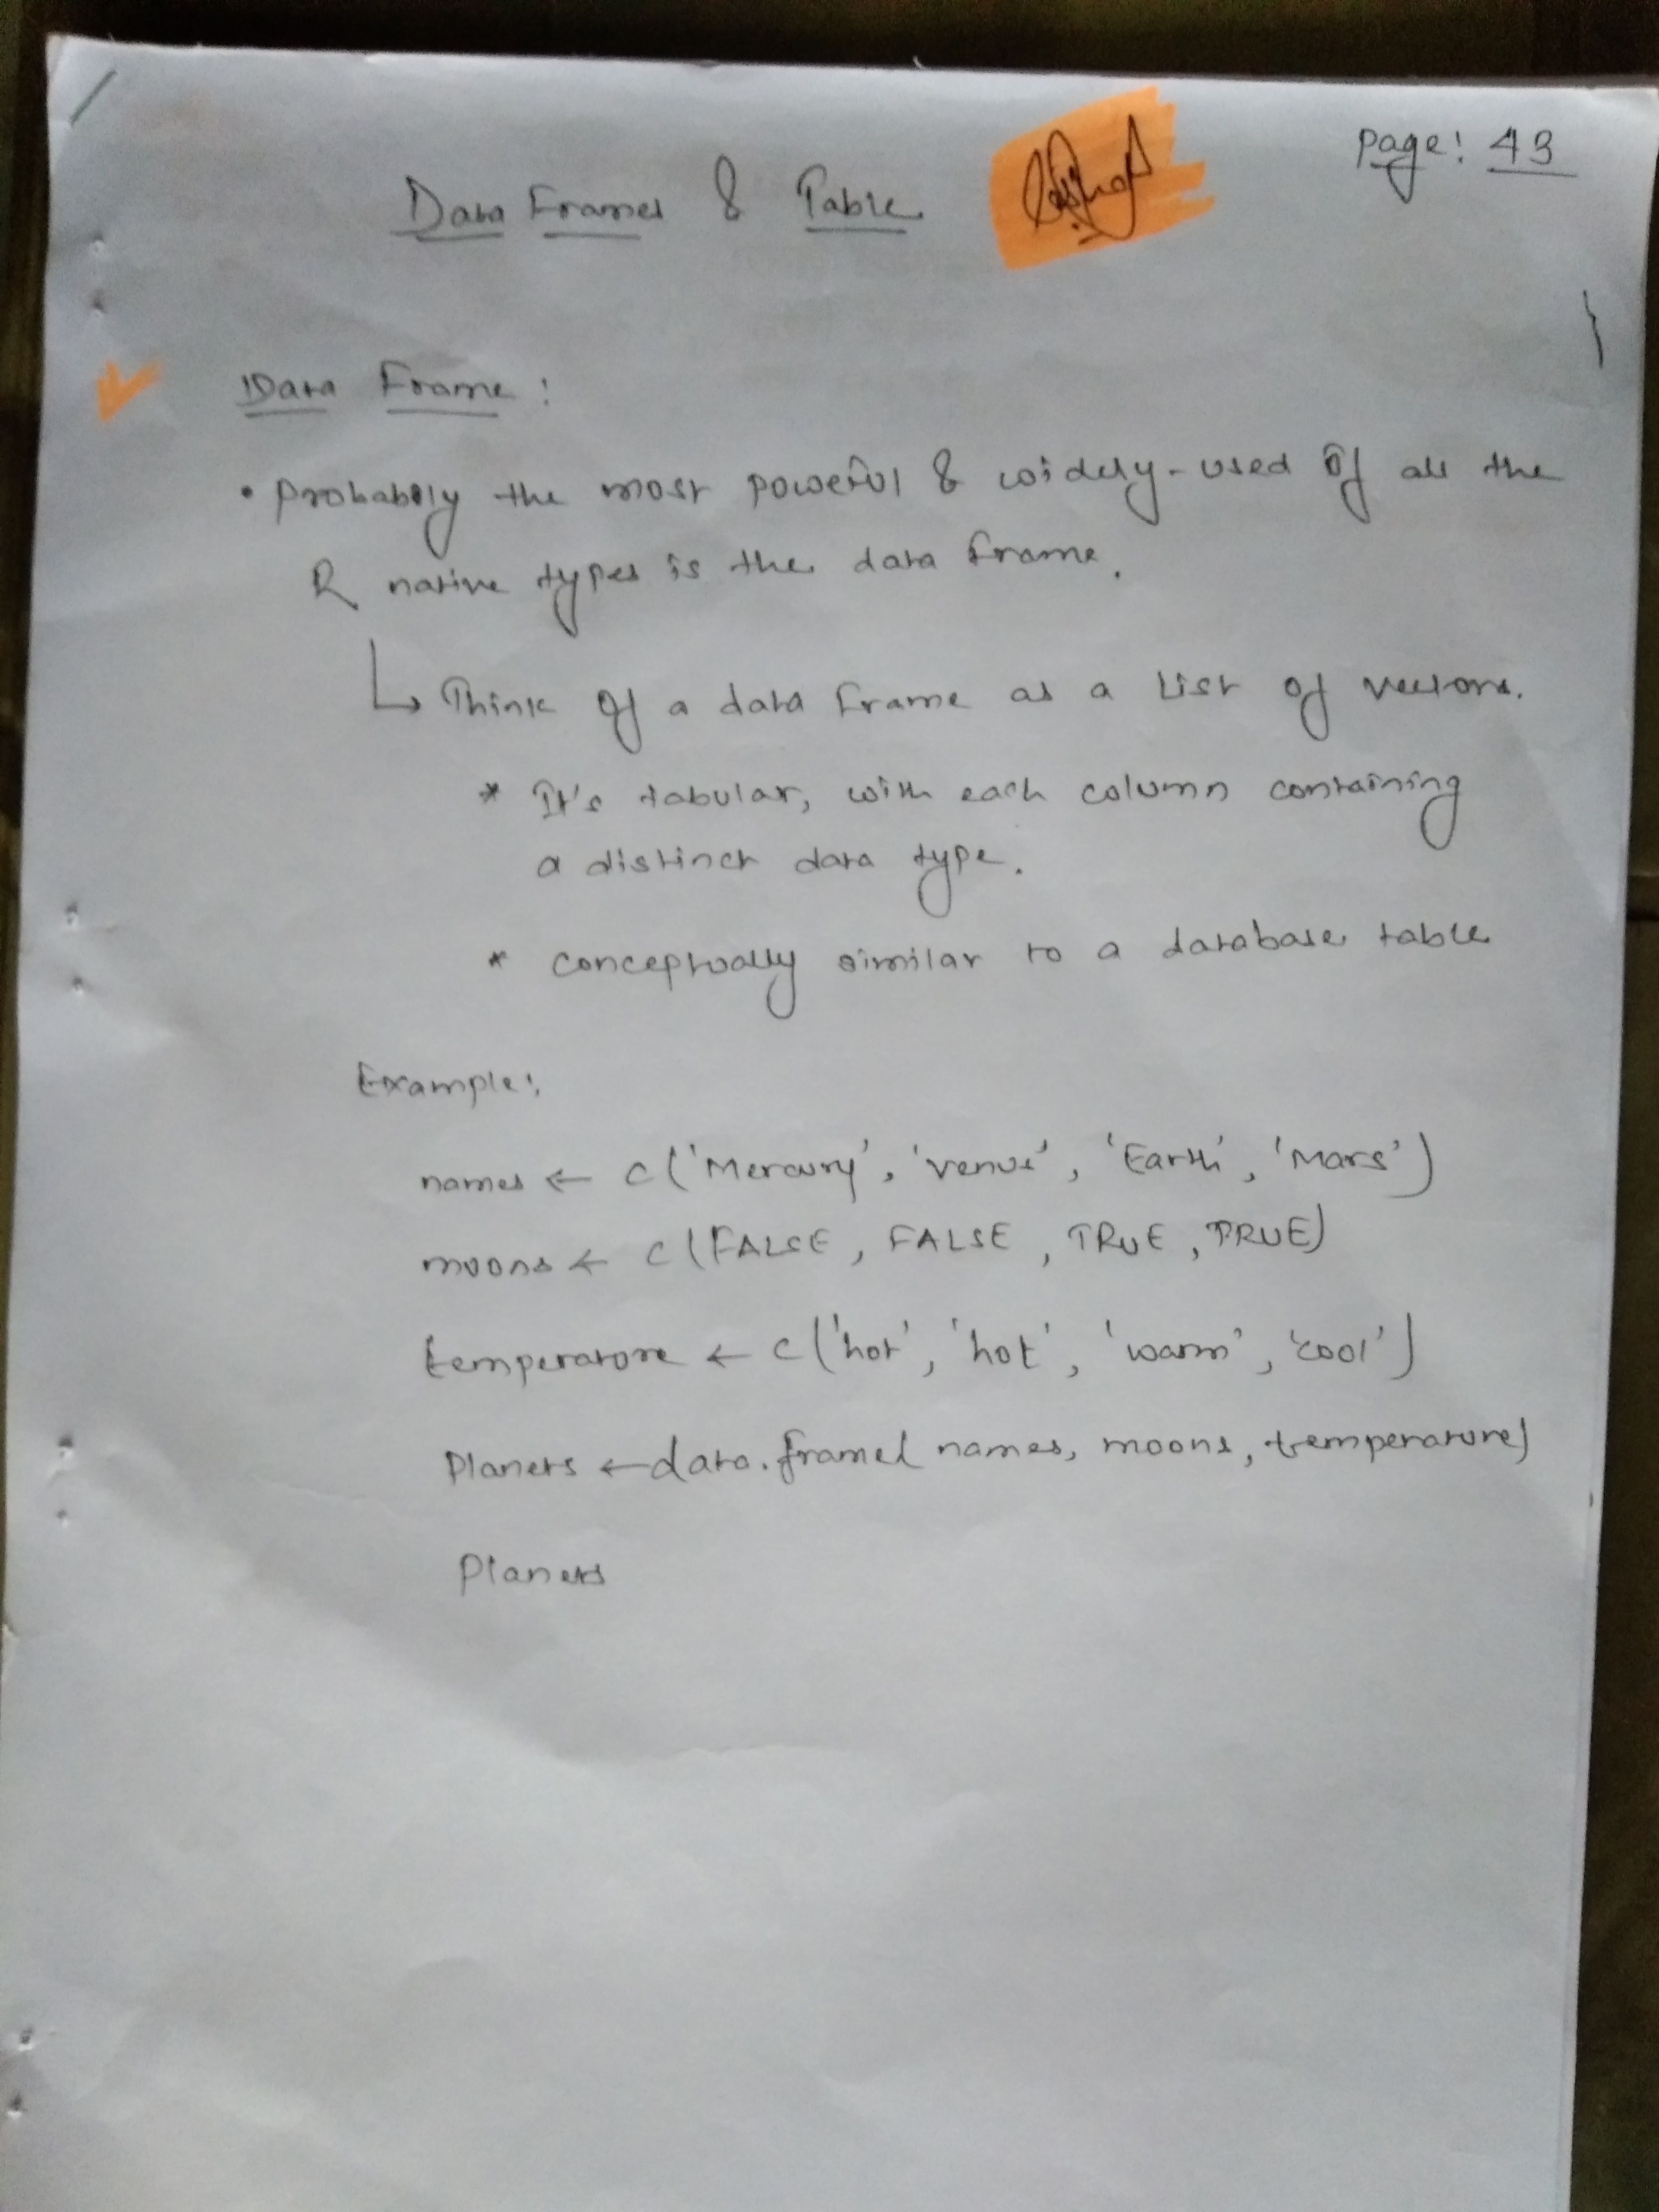 Page: 43
Data Frames & Table
Data Frame:
• Probabily the most powerful & widely-used of all the
R native types is the data frame.
↳ Think of a data frame as a list of vectors.
* It's tabular, with each column containing
a distinct data type.
* conceptually similar to a database table
Example:
names ← c('Mercury', 'venus', 'Earth', 'Mars')
moons ← c(FALSE, FALSE, TRUE, TRUE)
temperature ← c('hot', 'hot', 'warm', 'cool')
Planets ← data.frame( names, moons, temperature)
Planets